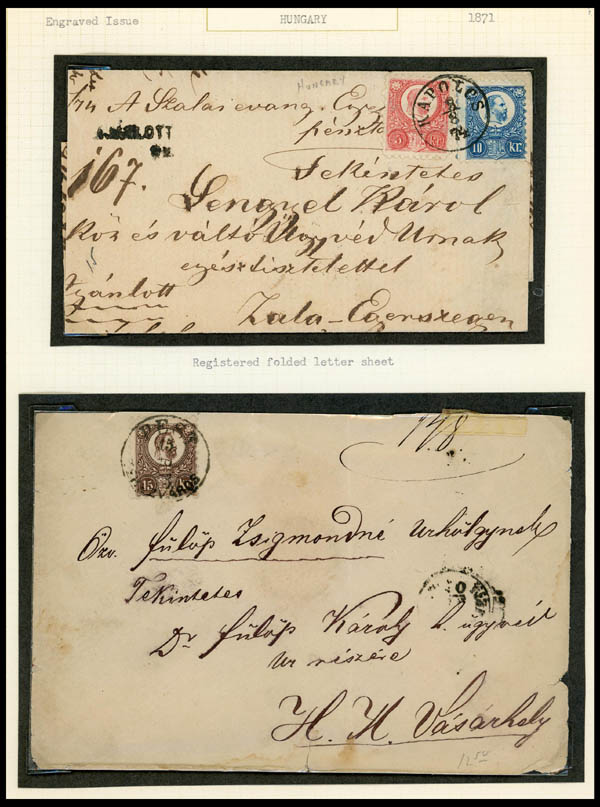 Engraved Issue
HUNGARY
1871
HUNGARY
A Szalai evang.
5 Kr.
KAPOLCS
10 Kr.
167.
Tekéntetes
Lengyel Károl
Köz és váltó Ügyvéd Urnak
15
Ajánlott
Zala-Egerszegen
Registered folded letter sheet
178
PEST
15
Özv. Fülöp Zsigmondné Urhölgynek
Tekintetes
Dr Fülöp Károly ügyvéd
Ur részére
H. M. Vásárhely
12.50